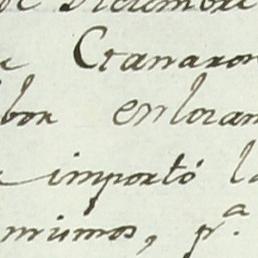 de Diciembre
Ctanaron
bon enloran
importó la
mimos, p.ª